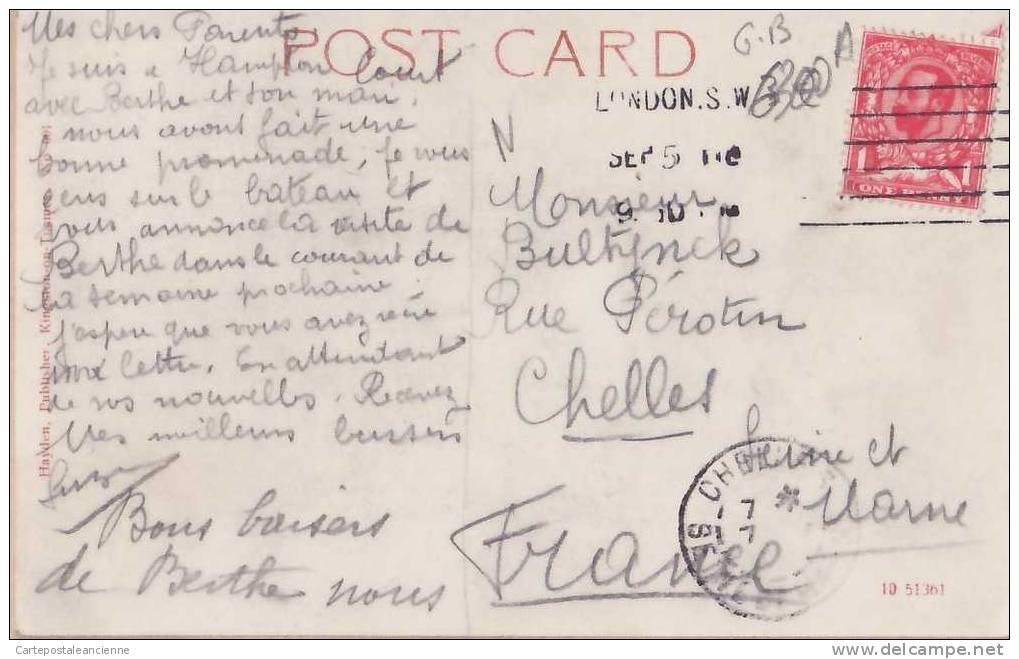 POST CARD
Mes chers Parents,
Je suis a Hampton Court
avec Berthe et son mari,
nous avont fait une
bonne promenade, je vous
ecris sur le bateau et
vous annonce la visite de
Berthe dans le courant de
la semaine prochaine
j'espere que vous avez recu
ma lettre. En attendant
de vos nouvelles. Recevez
Mes meilleurs baisers
Bons baisers
de Berthe nous
G.B
A
N
LONDON. S. W
SEP 5
Monsieur
Bultynck
Rue Pérotin
Chelles
Seine et
Marne
France
ONE PENNY
CHELLES
7
7
10 51361
Hayden, Publisher, Kingston-on-Thames
Cartepostaleancienne
delcampe.net